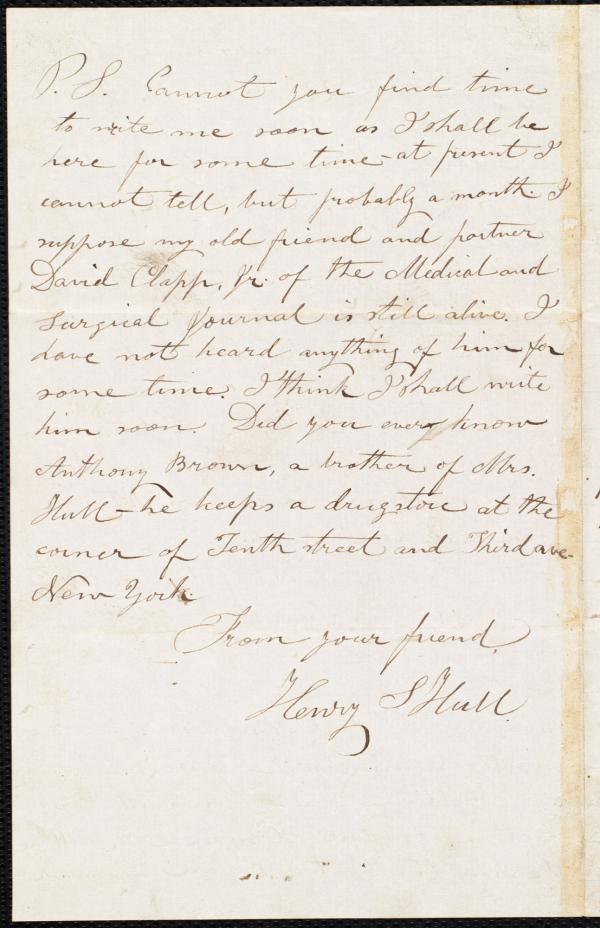 P. S. Cannot you find time
to write me soon as I shall be
here for some time - at present I
cannot tell, but probably a month. I
suppose my old friend and partner
David Clapp, Jr. of the Medical and
Surgical Journal is still alive. I
have not heard anything of him for
some time. I think I shall write
him soon. Did you every know
Anthony Brown, a brother of Mrs.
Hull - he keeps a drugstore at the
corner of Tenth street and Third ave-
New York.
From your friend,
Henry S Hull.